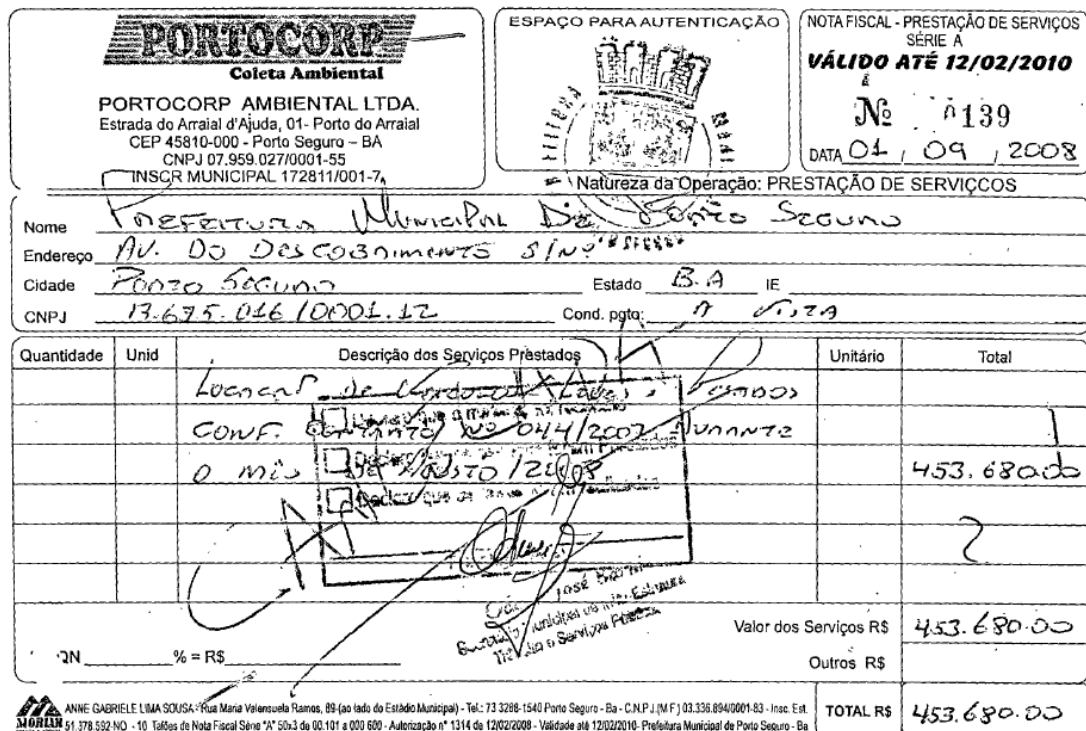 PORTOCORP
Coleta Ambiental
PORTOCORP AMBIENTAL LTDA.
Estrada do Arraial d'Ajuda, 01- Porto do Arraial
CEP 45810-000 - Porto Seguro – BA
CNPJ 07.959.027/0001-55
INSCR MUNICIPAL 172811/001-7
ESPAÇO PARA AUTENTICAÇÃO
NOTA FISCAL - PRESTAÇÃO DE SERVIÇOS
SÉRIE A
VÁLIDO ATÉ 12/02/2010
Nº 139
DATA 01 / 09 / 2008
Natureza da Operação: PRESTAÇÃO DE SERVIÇCOS
Nome PREFEITURA MUNICIPAL DE PORTO SEGURO
Endereço AV. DO DESCOBRIMENTO S/Nº
Cidade PORTO SEGURO Estado B.A IE
CNPJ 13.675.016/0001.12 Cond. pgto: A VISTA
Quantidade Unid Descrição dos Serviços Prestados Unitário Total
de Leves
CONF. CONTRATO Nº 044/2007 DURANTE
O MÊS DE AGOSTO/2008 453.680.00
Declaro que
José
Valor dos Serviços R$ 453.680.00
QN % = R$
Outros R$
ANNE GABRIELE LIMA SOUSA - Rua Maria Valensuela Ramos, 89-(ao lado do Estádio Municipal) - Tel.: 73 3288-1540 Porto Seguro - Ba - C.N.P.J.(M F) 03.336.894/0001-83 - Insc. Est.
MORIAH 51.378.592-NO - 10 Talões de Nota Fiscal Série "A" 50x3 de 00.101 a 000 600 - Autorização n° 1314 de 12/02/2008 - Validade até 12/02/2010- Prefeitura Municipal de Porto Seguro - Ba
TOTAL R$ 453.680.00